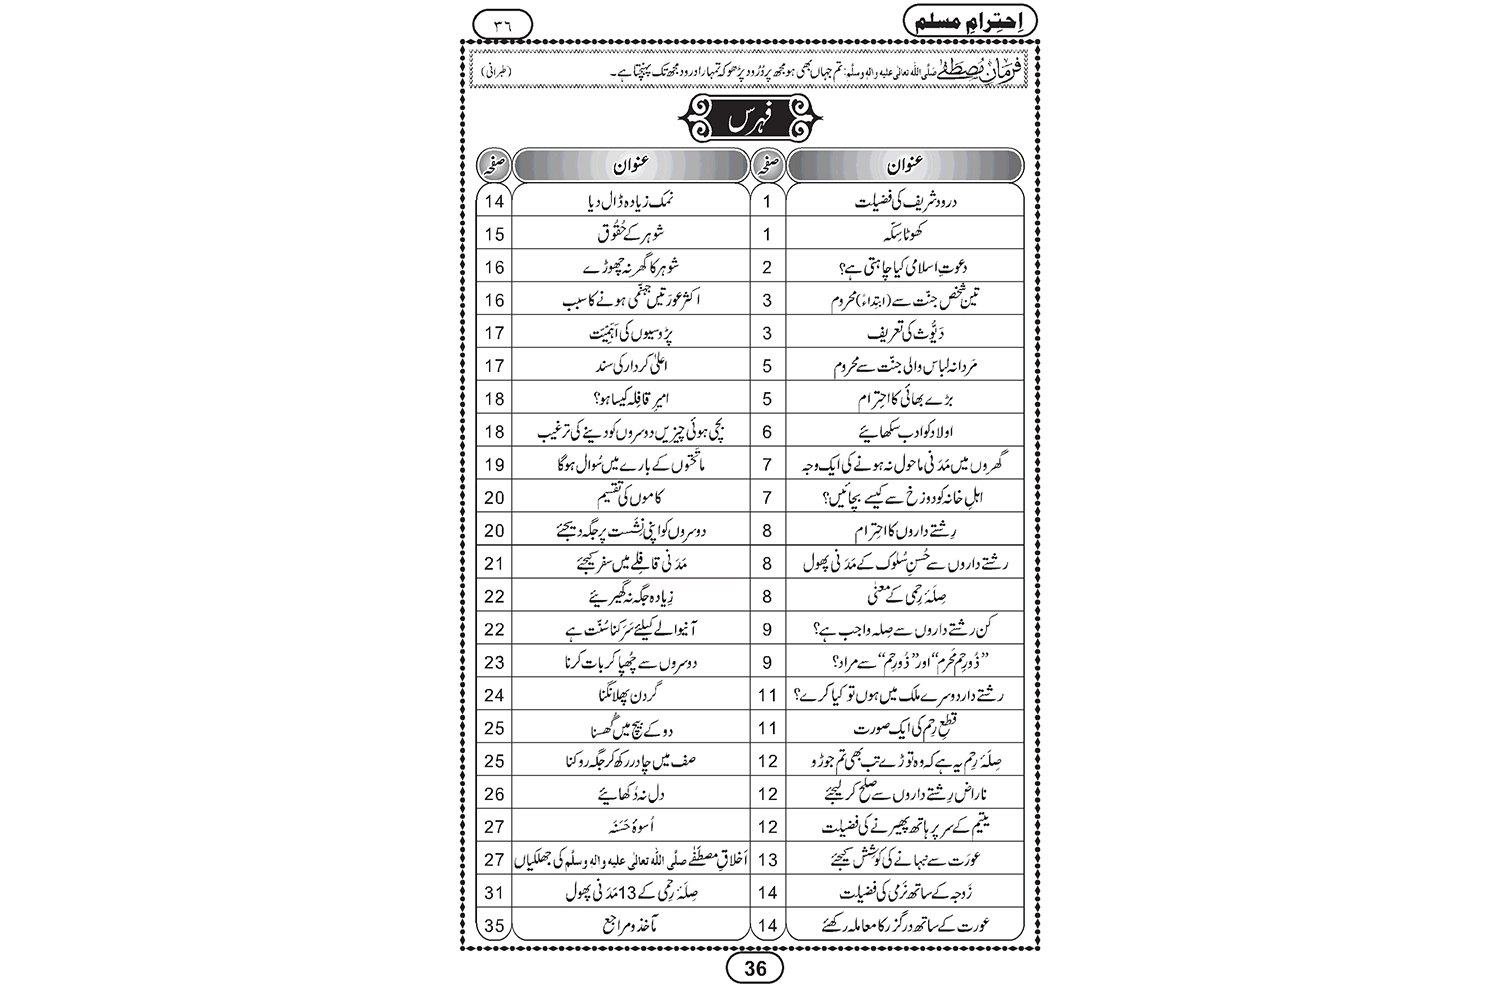 اِحتِرامِ مسلم
٣٦
فرمانِ مصطفےٰ صلَّی اللہ تعالٰی علیہ واٰلہٖ وسلَّم: تم جہاں بھی ہو مجھ پر دُرُود پڑھو کہ تمہارا درود مجھ تک پہنچتا ہے۔ (طبرانی)
فہرس
عنوان صفحہ عنوان صفحہ
درود شریف کی فضیلت 1 نمک زیادہ ڈال دیا 14
کھوٹا سِکّہ 1 شوہر کے حُقُوق 15
دعوتِ اسلامی کیا چاہتی ہے؟ 2 شوہر کا گھر نہ چھوڑے 16
تین شخص جنّت سے (ابتداءً) محروم 3 اکثر عورَتیں جہنّمی ہونے کا سبب 16
دَیُّوث کی تعریف 3 پڑوسیوں کی اَہَمِّیَّت 17
مَردانہ لباس والی جنّت سے محروم 5 اعلیٰ کردار کی سند 17
بڑے بھائی کا احتِرام 5 امیرِ قافِلہ کیسا ہو؟ 18
اولاد کو ادب سکھائیے 6 بچی ہوئی چیزیں دوسروں کو دینے کی ترغیب 18
گھروں میں مَدَنی ماحول نہ ہونے کی ایک وجہ 7 ماتَحْتوں کے بارے میں سُوال ہوگا 19
اہلِ خانہ کو دوزخ سے کیسے بچائیں؟ 7 کاموں کی تقسیم 20
رِشتے داروں کا احتِرام 8 دوسروں کو اپنی نِشَست پر جگہ دیجئے 20
رشتے داروں سے حُسنِ سُلوک کے مَدَنی پھول 8 مَدَنی قافِلے میں سفر کیجئے 21
صِلَۂ رِحمی کے معنٰی 8 زِیادہ جگہ نہ گھیریئے 22
کن رشتے داروں سے صِلہ واجب ہے؟ 9 آنیوالے کیلئے سَرَکنا سُنّت ہے 22
”ذُورِحم مَحرم“ اور ”ذُورِحم“ سے مراد؟ 9 دوسروں سے چُھپا کر بات کرنا 23
رشتے دار دوسرے ملک میں ہوں تو کیا کرے؟ 11 گردن پھلانگنا 24
قطعِ رِحم کی ایک صورت 11 دو کے بیچ میں گُھسنا 25
صِلَۂ رِحم یہ ہے کہ وہ توڑے تب بھی تم جوڑو 12 صف میں چادر رکھ کر جگہ روکنا 25
ناراض رِشتے داروں سے صلح کر لیجئے 12 دل نہ دُکھائیے 26
یتیم کے سر پر ہاتھ پھیرنے کی فضیلت 12 اُسوۂ حَسَنَہ 27
عورَت سے نِبہانے کی کوشِش کیجئے 13 اَخلاقِ مصطَفٰے صلَّی اللہ تعالٰی علیہ واٰلہٖ وسلَّم کی جھلکیاں 27
زَوجہ کے ساتھ نَرمی کی فضیلت 14 صِلَۂ رِحمی کے 13 مَدَنی پھول 31
عورت کے ساتھ درگزر کا معاملہ رکھئے 14 مآخذ و مراجع 35
36